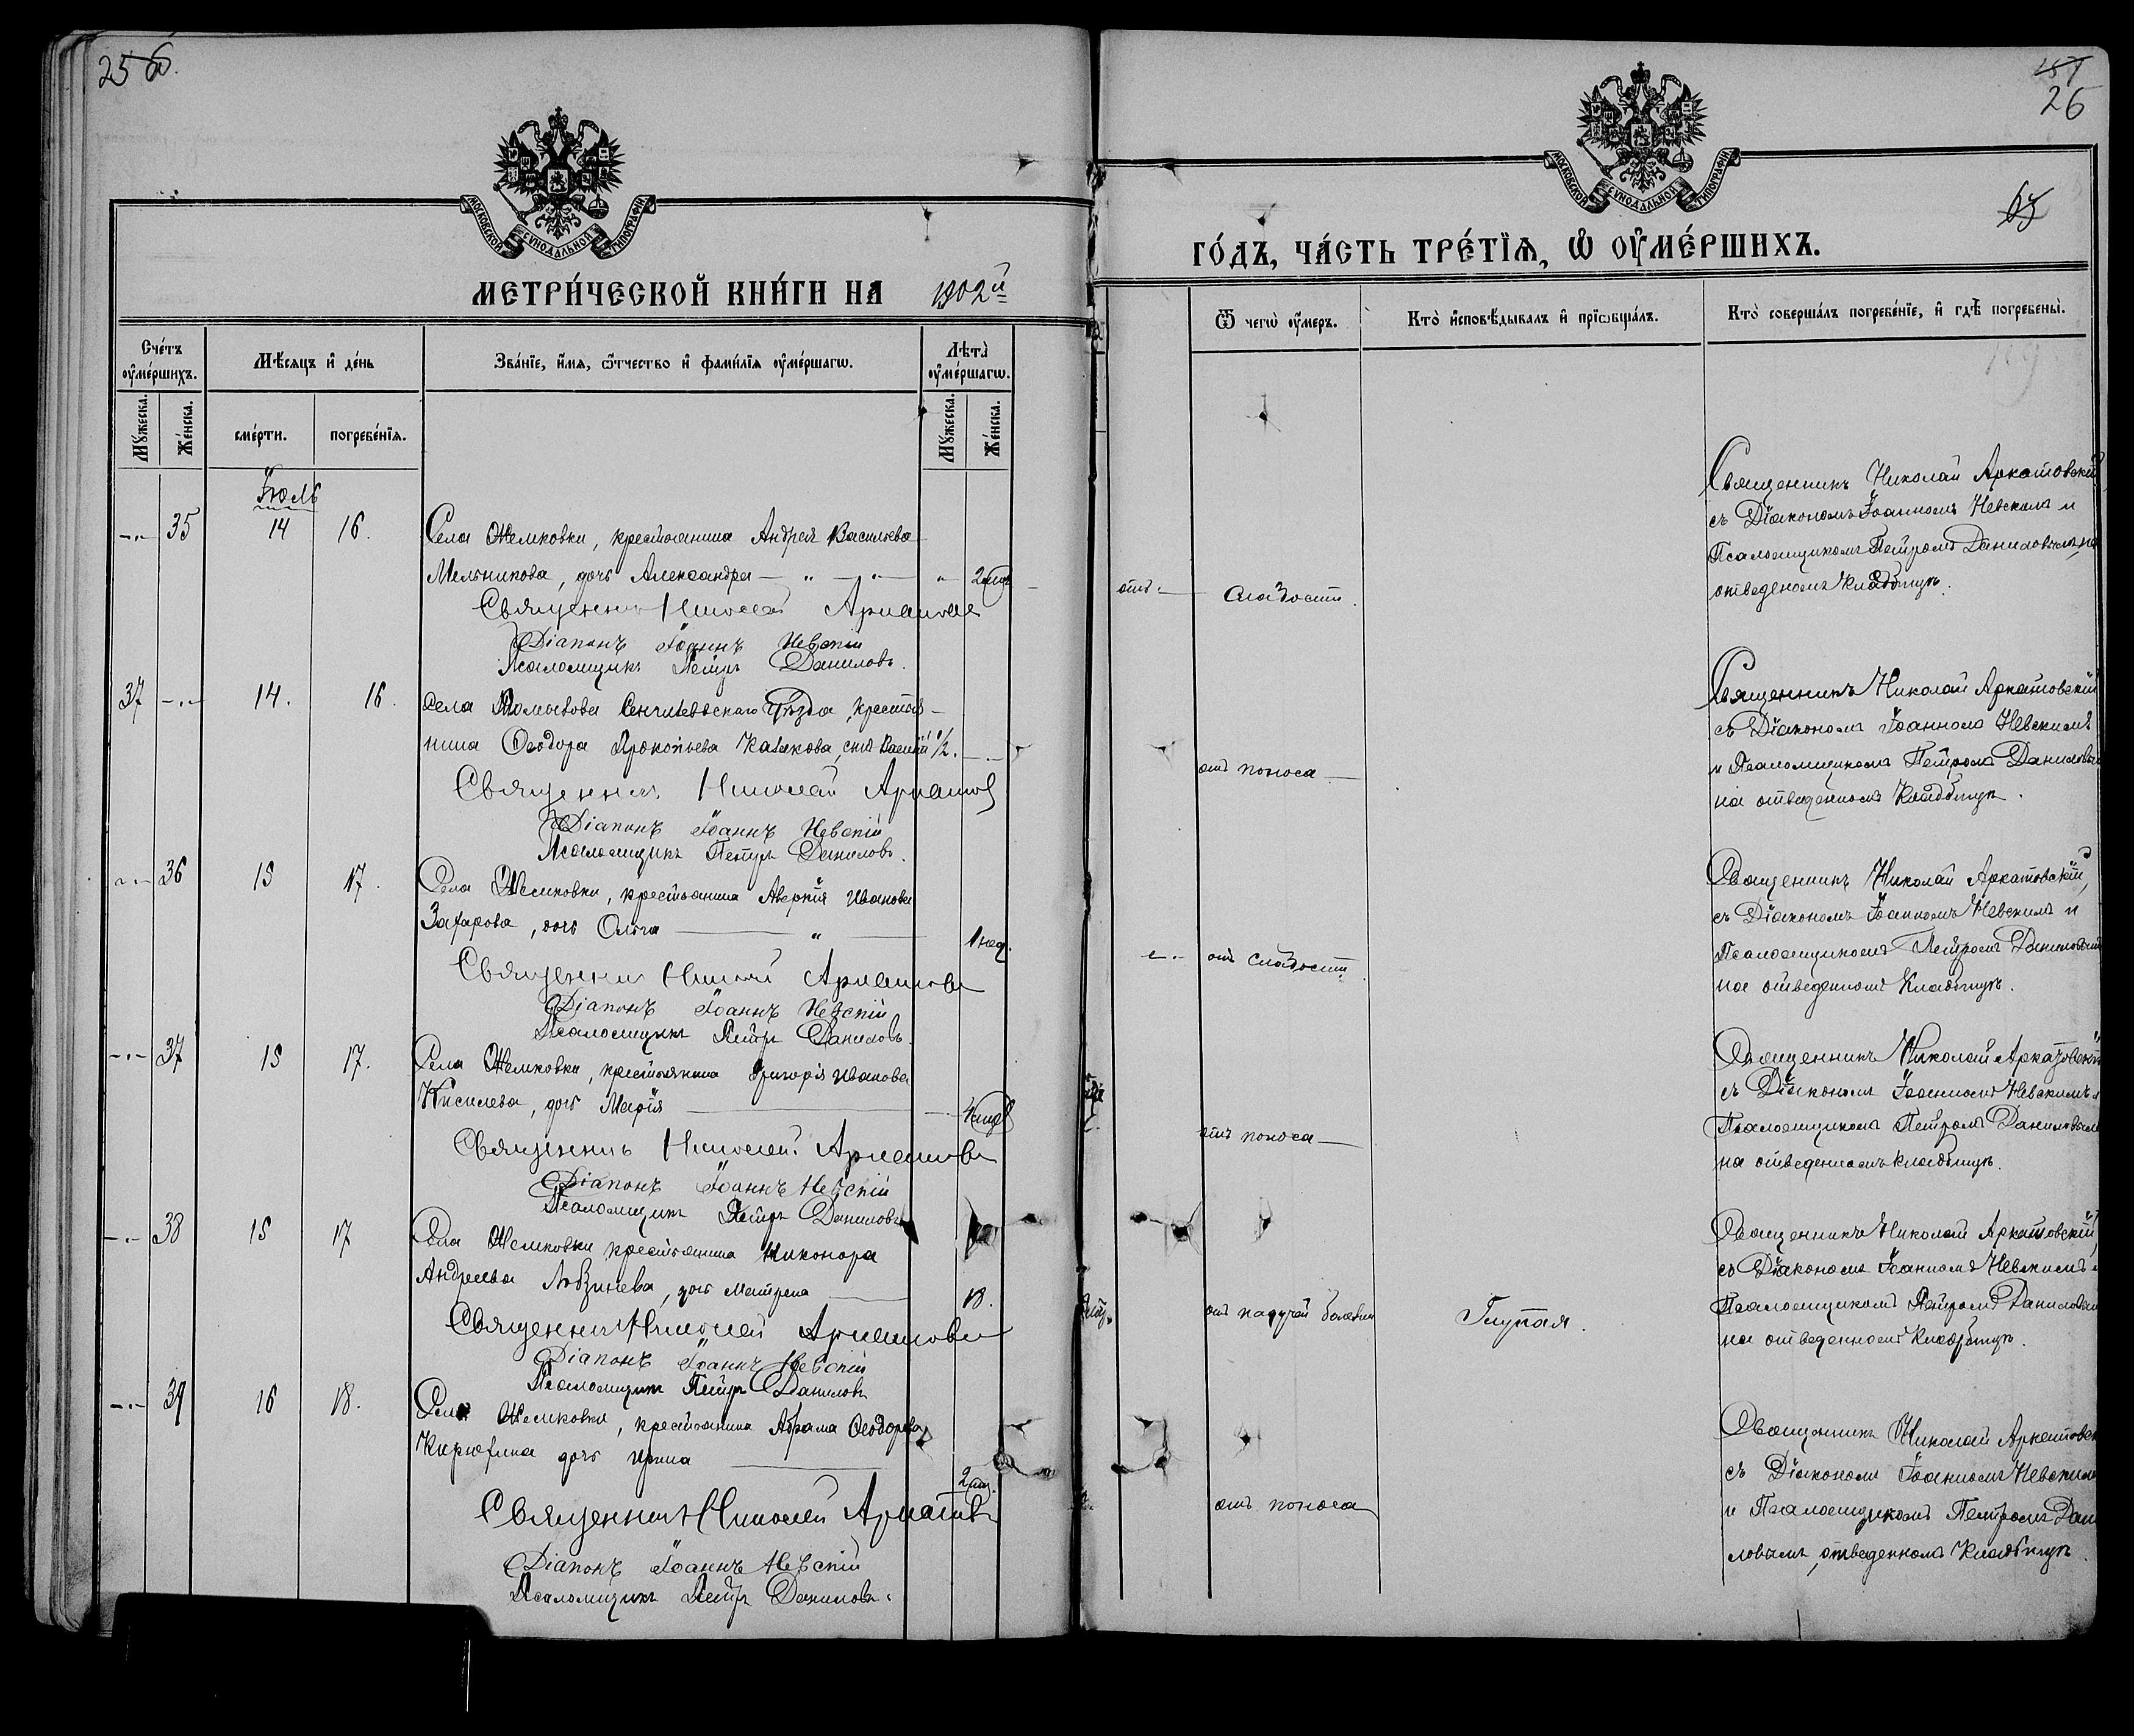 256.
МОСКОВСКОЙ СѴНОДАЛЬНОЙ ТИПОГРАФІИ
МЕТРИ́ЧЕСКОЙ КНИ́ГИ НА 1902й
Сче́тъ ѹ҆ме́ршихъ.
Мѣ́сяцъ и҆ де́нь
Зва́нїе, и҆́мя, ѻ҆́тчество и҆ фами́лїя ѹ҆ме́ршагѡ.
Лѣ́та ѹ҆ме́ршагѡ.
Мꙋ́жеска.
Же́нска.
сме́рти.
погребе́нїя.
Мꙋ́жеска.
Же́нска.
Іюль
35 14 16. Села Жемковки, крестьянина Андрея Васильева
Мельникова, дочь Александра 2
Священникъ Николай
Діаконъ Іоаннъ Невскій
Псаломщикъ Петръ Даниловъ.
37 14. 16. Села Сенгилеевскаго Уѣзда, крестья-
нина Ѳеодора Прокопьева Казакова, сынъ Василій 1/2.
Священникъ Николай
Діаконъ Іоаннъ Невскій
Псаломщикъ Петръ Даниловъ.
36 15 17. Села Жемковки, крестьянина Аверкія Иванова
Захарова, дочь Ольга 1 нед.
Священникъ Николай
Діаконъ Іоаннъ Невскій
Псаломщикъ Петръ Даниловъ.
37 15 17. Села Жемковки, крестьянина Григорія Иванова
Киселева, дочь Марія
Священникъ Николай
Діаконъ Іоаннъ Невскій
Псаломщикъ Петръ Даниловъ
38 15 17 Села Жемковки крестьянина Никонора
Андреева дочь Матрена 18.
Священникъ Николай
Діаконъ Іоаннъ Невскій
Псаломщикъ Петръ Даниловъ
39 16 18. Села Жемковки, крестьянина Абрама Ѳеодорова
Кирюхина дочь Ирина 2
Священникъ Николай
Діаконъ Іоаннъ Невскій
Псаломщикъ Петръ Даниловъ.
257
26
МОСКОВСКОЙ СѴНОДАЛЬНОЙ ТИПОГРАФІИ
ГО́ДЪ, ЧА́СТЬ ТРЕ́ТЇЯ, Ѡ҆ ОУ҆МЕ́РШИХЪ.
Ѿ чегѡ̀ ѹ҆́меръ.
Кто̀ и҆сповѣ́дывалъ и҆ прїѡбща́лъ.
Кто̀ соверша́лъ погребе́нїе, и҆ гдѣ̀ погребены̀.
отъ слабости.
Священникъ Николай Аркатовскій
съ Діакономъ Іоанномъ Невскимъ и
Псаломщикомъ Петромъ Даниловымъ, на
отведеномъ кладбищѣ.
отъ поноса
Священникъ Николай Аркатовскій
съ Діакономъ Іоанномъ Невскимъ
и Псаломщикомъ Петромъ Даниловы
на отведенномъ Кладбищѣ.
отъ слабости.
Священникъ Николай Аркатовскій,
съ Діакономъ Іоанномъ Невскимъ и
Псаломщикомъ Петромъ Даниловым
на отведенномъ Кладбищѣ.
отъ поноса
Священникъ Николай Аркатовскій
съ Діакономъ Іоанномъ Невскимъ и
Псаломщикомъ Петромъ Даниловымъ
на отведенномъ кладбищѣ.
отъ падучей болезни
Глупая.
Священникъ Николай Аркатовскій,
съ Діакономъ Іоанномъ Невскимъ и
Псаломщикомъ Петромъ Даниловым
на отведенномъ Кладбищѣ.
отъ поноса
Священникъ Николай Аркатовск
съ Діакономъ Іоанномъ Невским
и Псаломщикомъ Петромъ Дани
ловымъ, отведенномъ Кладбищѣ.